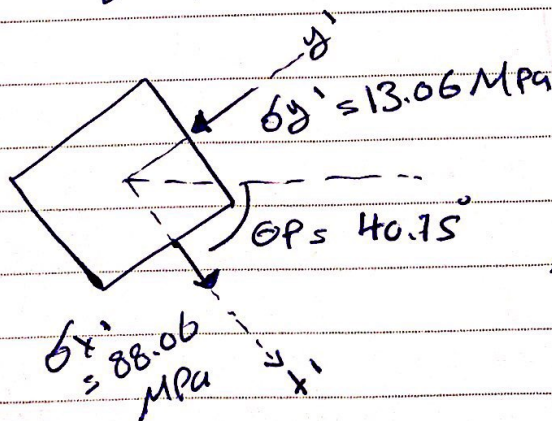 y'
σy' = 13.06 MPa
θP = 40.75°
σx'
= 88.06
MPa
x'